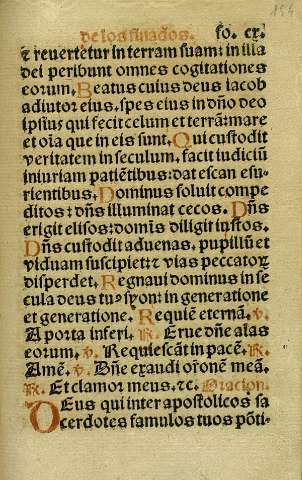 de los finados. fo. cx.
154
⁊ reuertetur in terram suam: in illa
dei peribunt omnes cogitationes
eorum. Beatus cuius deus iacob
adiutor eius. spes eius in dño deo
ipsiꝰ qui fecit celum et terrã: mare
et oĩa que in eis sunt. Qui custodit
veritatem in seculum. facit iudiciũ
iniuriam patiẽtibus: dat escan esu-
rientibus. Dominus soluit compe
ditos: dñs illuminat cecos. Dñs
erigit elisos: domiñs diligit iustos.
Dñs custodit aduenas. pupillũ et
viduam suscipiet: ⁊ vias peccatoꝝ
disperdet. Regnaui dominus in se
cula deus tuꝰ syon: in generatione
et generatione. Requiẽ eternã. v.
A porta inferi. R. Erue dñe alas
eorum. v. Requiescãt in pacẽ. R.
Amẽ. v. Dñe exaudi orõnẽ meã.
R. Et clamor meus. ⁊c. Oracion.
DEus qui inter apostolicos sa
cerdotes famulos tuos põti-